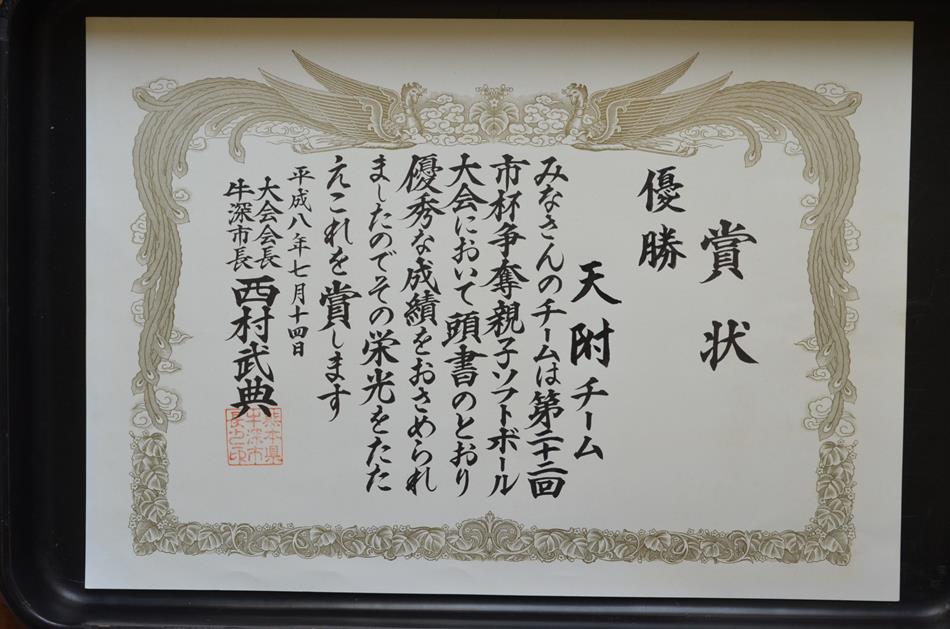 賞状
優勝
天附チーム
みなさんのチームは第二十二回
市杯争奪親子ソフトボール
大会において頭書のとおり
優秀な成績をおさめられ
ましたのでその栄光をたた
えこれを賞します
平成八年七月十四日
大会会長
牛深市長
西村武典
熊本県
牛深市
長之印